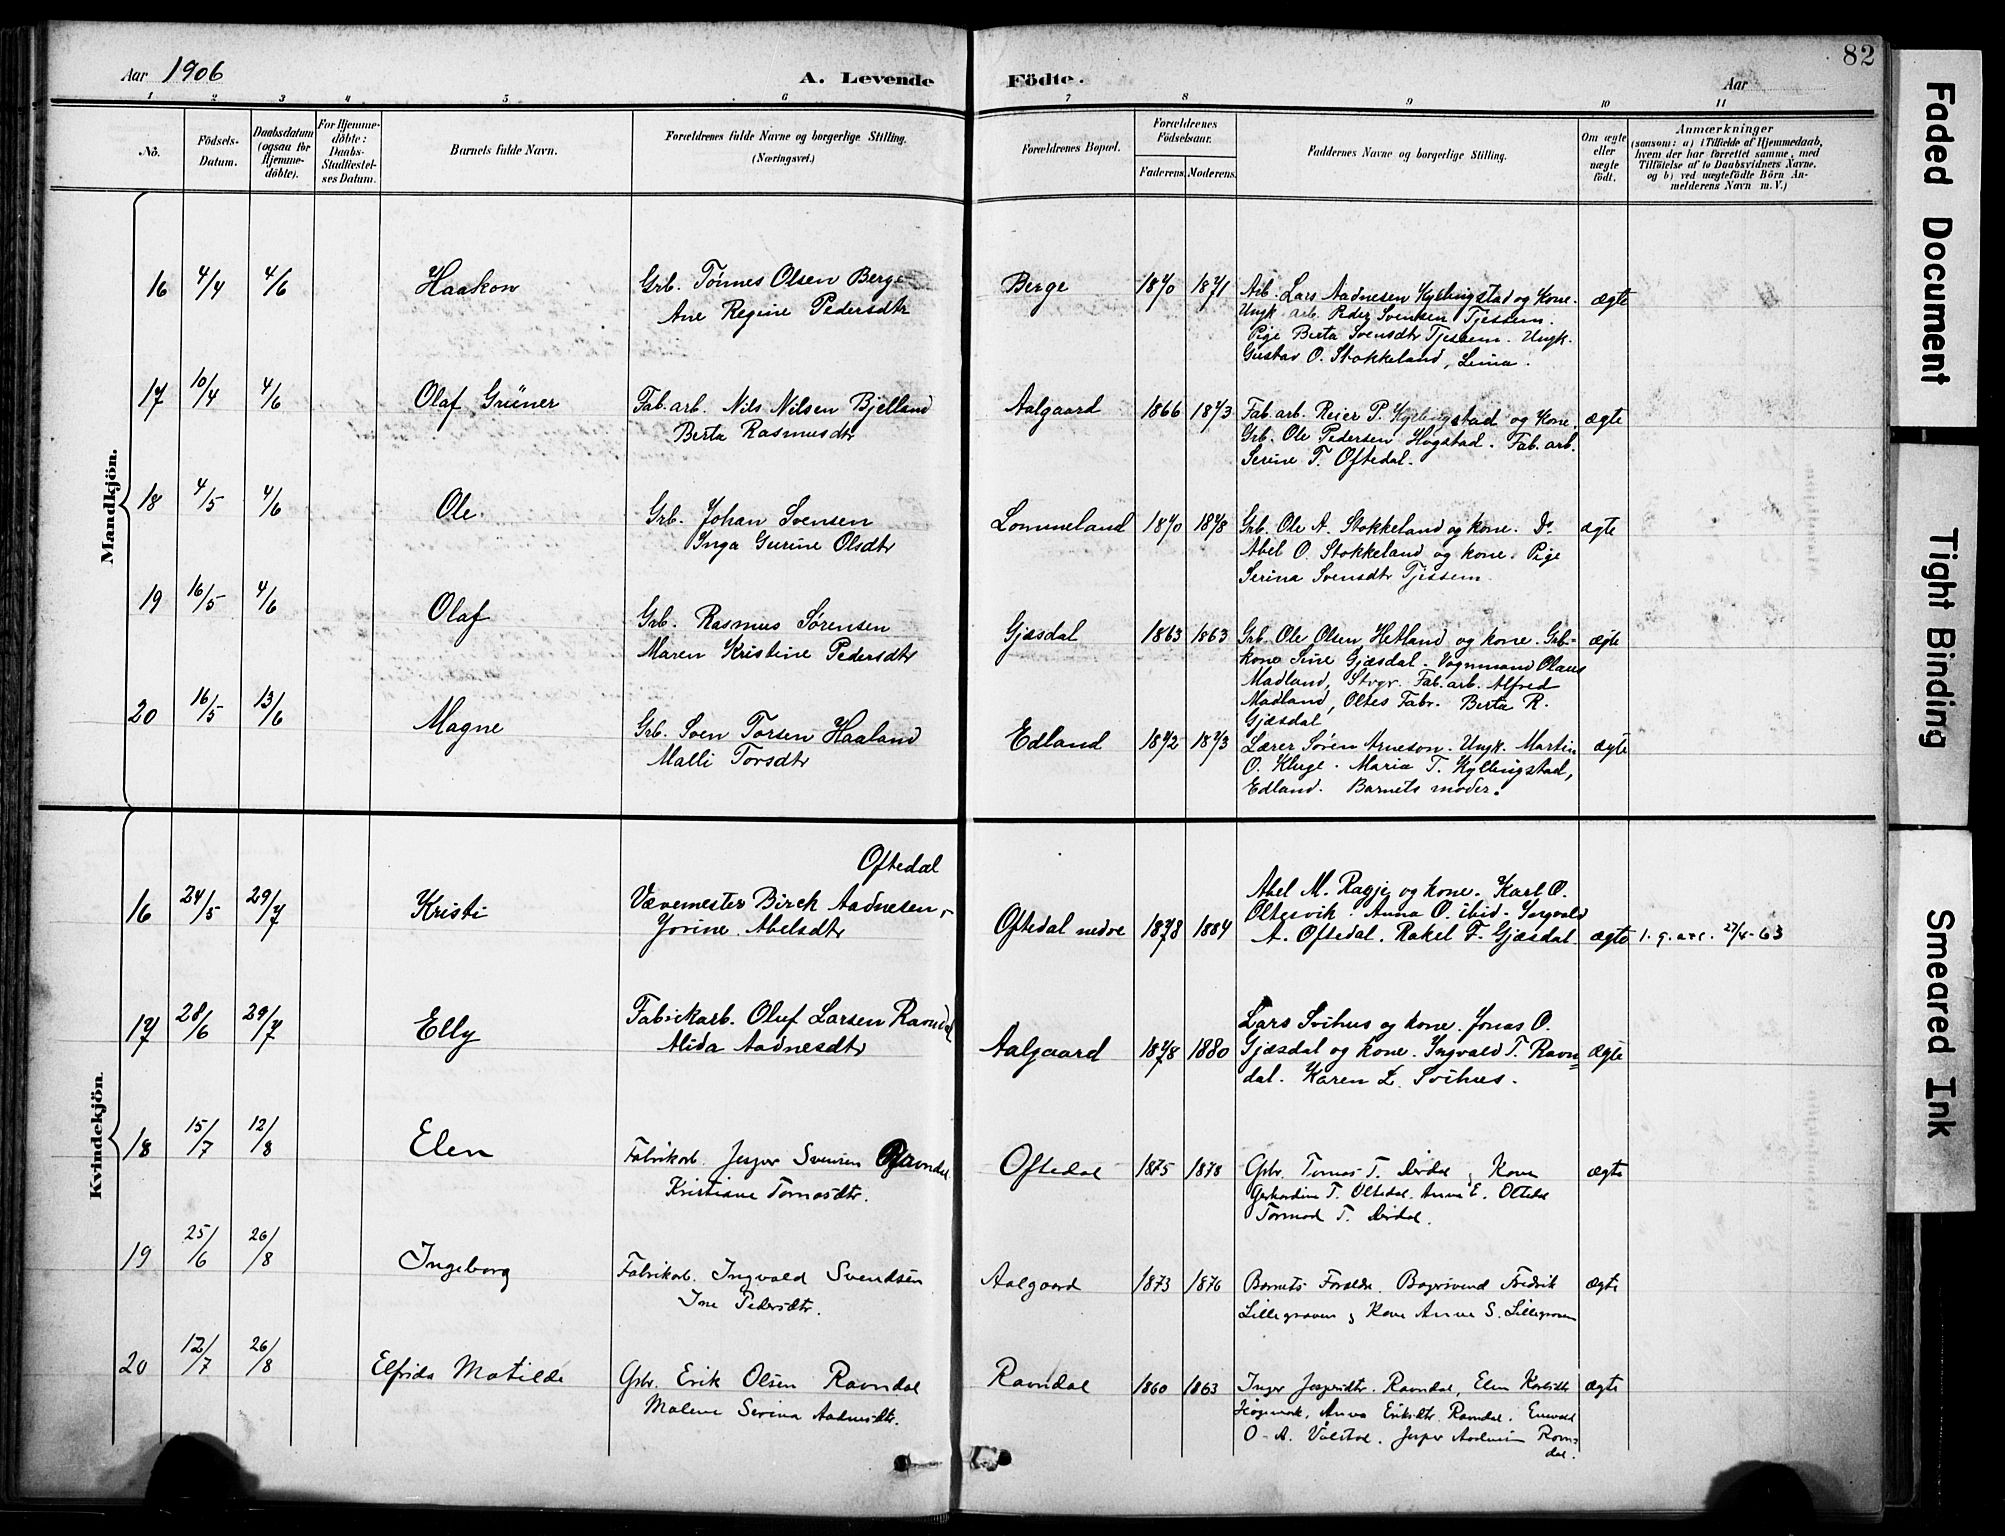 82
Aar 1906
A. Levende
Födte.
Aar
1 2 3 4 5 6 7 8 9 10 11
Nö.
Födsels-
Datum.
Daabsdatum
(ogsaa for
Hjemme-
döbte).
For Hjemme-
döbte:
Daabs-
Stadfæstel-
ses Datum.
Barnets fulde Navn.
Forældrenes fulde Navne og borgerlige Stilling.
(Næringsvei.)
Forældrenes Bopæl.
Forældrenes
Födselsaar.
Faderens.
Moderens.
Faddernes Navne og borgerlige Stilling.
Om ægte
eller
uægte
födt.
Anmærkninger
(saasom: a) i Tilfælde af Hjemmedaab,
hvem der har forrettet samme, med
Tilföielse af to Daabsvidners Navne.
og b) ved uægtefödte Börn An-
melderens Navn m. V.)
Mandkjön.
16 4/4 4/6 Haakon
Grb. Tønnes Olsen Berge
Ane Regine Pedersdtr
Berge 1870 1871
Arb. Lars Aadnesen Kyllingstad og Kone.
Ungk. arb. Peder Svensen Tjessem.
Pige Berta Svensdtr Tjessem. Ungk.
Gustav O. Stokkeland, Lima.
ægte
17 10/4 4/6 Olaf Grüner
Fab. arb. Nils Nilsen Bjelland
Berta Rasmusdtr
Aalgaard 1866 1873
Fab. arb. Reier P. Kyllingstad og Kone.
Grb. Ole Pedersen Hogstad. Fab. arb.
Serine T. Oftedal.
ægte
18 4/5 4/6 Ole
Grb. Johan Svensen
Inga Gurine Olsdtr
Lommeland 1870 1878
Grb. Ole A. Stokkeland og kone. Do
Abel O. Stokkeland og kone. Pige
Serina Svensdtr Tjessem.
ægte
19 16/5 4/6 Olaf
Grb. Rasmus Sørensen
Maren Kristine Pedersdtr
Gjæsdal 1863 1863
Grb. Ole Olsen Hetland og kone. Grb-
kone Sine Gjæsdal. Vognmand Olaus
Madland, Stvgr. Fab. arb. Alfred
Madland, Oltes Fabr. Berta R.
Gjæsdal
ægte
20 16/5 13/6 Magne
Grb. Sven Torsen Haaland
Malli Torsdtr
Edland 1872 1873
Lærer Søren Arneson. Ungk. Martin
O. Kluge. Maria T. Kyllingstad,
Edland. Barnets moder.
ægte
Kvindekjön.
16 24/5 29/7 Kristi
Oftedal
Vævemester Birck Aadnesen
Jorine Abelsdtr
Oftedal nedre 1878 1884
Abel M. Ragje og kone. Karl O.
Oltesvik. Anna O. ibid. Ingvald
A. Oftedal. Rakel F. Gjæsdal
ægte 27/4-63
17 28/6 29/7 Elly
Fabrickarb. Oluf Larsen Ravndal
Alida Aadnesdtr
Aalgaard 1878 1880
Lars Svihus og kone. Jonas O.
Gjæsdal og kone. Ingvald T. Ravn=
dal. Karen L. Svihus.
ægte
18 15/7 12/8 Elen
Fabrikarb. Jesper Svensen Ravndal
Kristiane Tomasdtr.
Oftedal 1875 1878
Grbr. Tomas T. Dirdal og Kone
Gerhardine T. Oltedal. Anna E. Oltedal
Tormod T. Dirdal.
ægte
19 25/6 26/8 Ingeborg
Fabrikarb. Ingvald Svendsen
Ine Pedersdtr.
Aalgaard 1873 1876
Barnets Forældre. Fredrik
Lillegraven og Kone Anna S. Lillegraven
ægte
20 12/7 26/8 Elfrida Matilde
Grbr. Erik Olsen Ravndal
Malene Serina Aadnesdtr.
Ravndal 1860 1863
Inger Jespersdtr. Ravndal, Elen
Anna Eriksdtr. Ravndal.
O. A. Valstad. Jesper Aadnesen Ravn=
dal.
ægte
Faded Document
Tight Binding
Smeared Ink